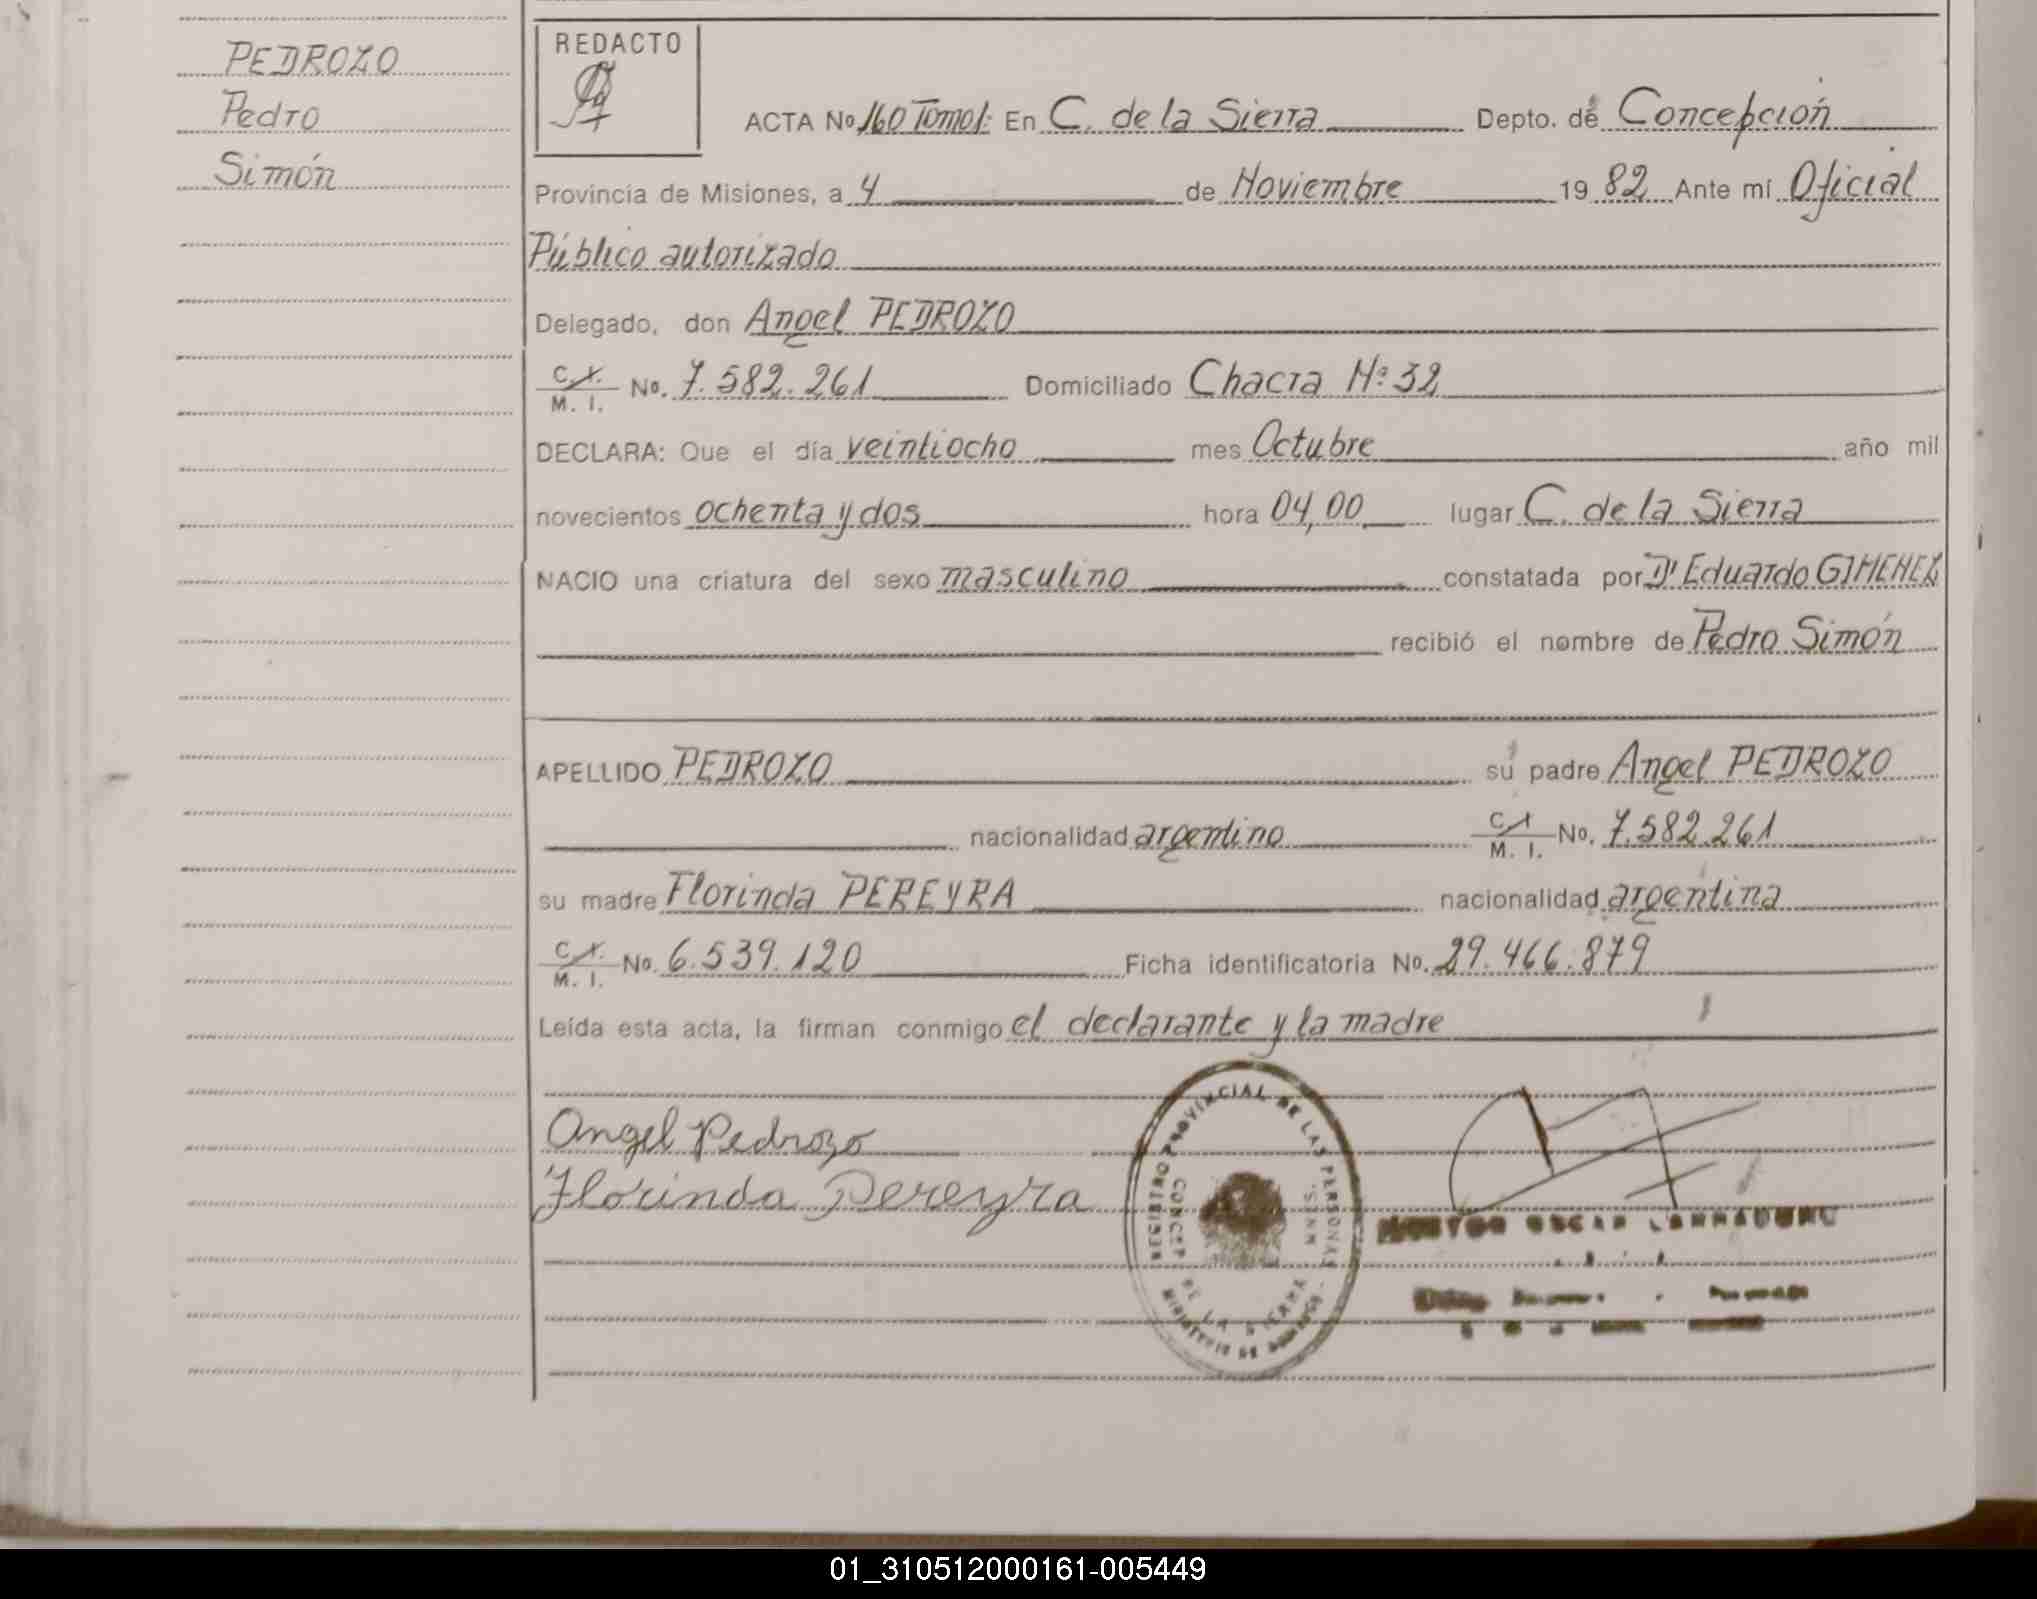 PEDROZO
Pedro
Simón
REDACTO
ACTA No 160 Tomo 1: En C. de la Sierra Depto. de Concepción
Provincia de Misiones, a 4 de Noviembre 19 82 Ante mí Oficial
Público autorizado
Delegado, don Angel PEDROZO
C.I. M. I. No. 7.582.261 Domiciliado Chacra Nº 32
DECLARA: Que el día veintiocho mes Octubre año mil
novecientos ochenta y dos hora 04,00 lugar C. de la Sierra
NACIO una criatura del sexo masculino constatada por Dr Eduardo GIMENEZ
recibió el nombre de Pedro Simón
APELLIDO PEDROZO su padre Angel PEDROZO
nacionalidad argentino C.I. M. I. No. 7.582.261
su madre Florinda PEREYRA nacionalidad argentina
C.I. M. I. No. 6.539.120 Ficha identificatoria No. 29.466.879
Leída esta acta, la firman conmigo el declarante y la madre
Angel Pedrozo
Florinda Pereyra
REGISTRO PROVINCIAL DE LAS PERSONAS
CONCEP. DE LA SIERRA MNES.
MINISTERIO DE GOBIERNO
OSCAR
01_310512000161-005449